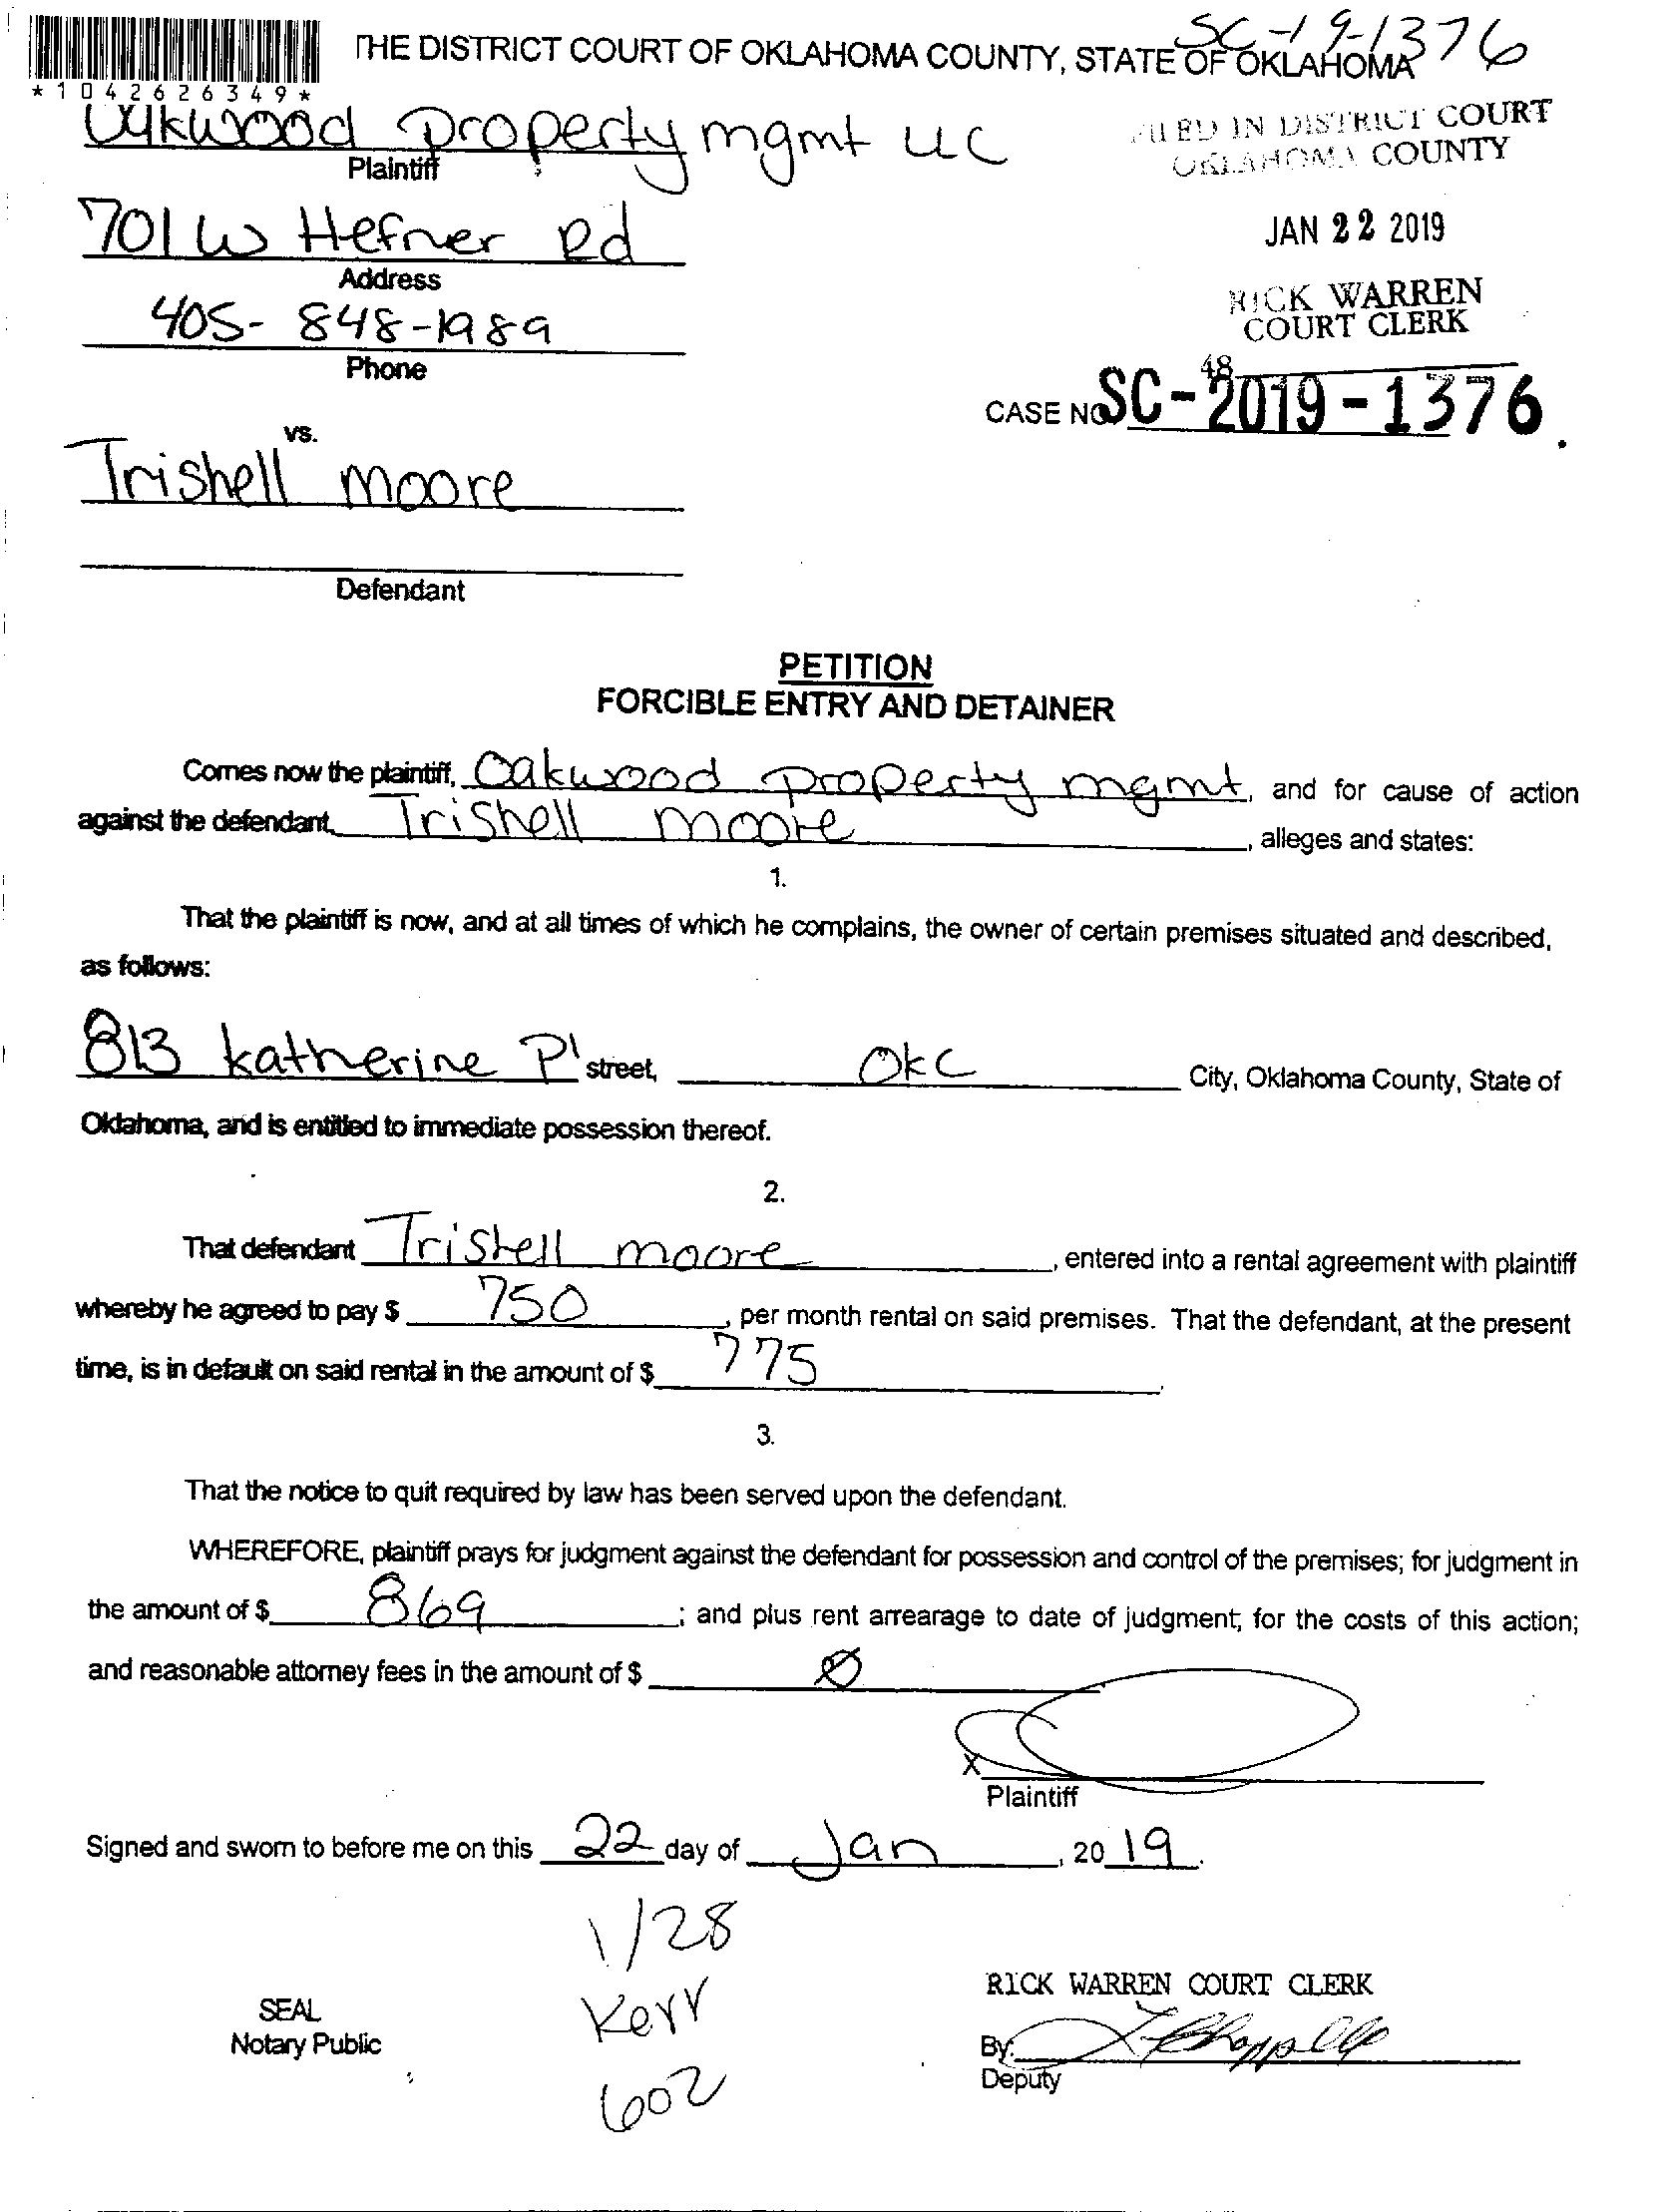 SC-19-1376
THE DISTRICT COURT OF OKLAHOMA COUNTY, STATE OF OKLAHOMA
*1042626349*
Oakwood property mgmt LLC
Plaintiff
FILED IN DISTRICT COURT
OKLAHOMA COUNTY
701 W Hefner Rd
Address
JAN 22 2019
405-848-1989
Phone
RICK WARREN
COURT CLERK
48
CASE NO. SC-2019-1376.
vs.
Trishell moore
Defendant
PETITION
FORCIBLE ENTRY AND DETAINER
Comes now the plaintiff, Oakwood property mgmt, and for cause of action
against the defendant, Trishell moore, alleges and states:
1.
That the plaintiff is now, and at all times of which he complains, the owner of certain premises situated and described,
as follows:
813 katherine Pl street, OKC City, Oklahoma County, State of
Oklahoma, and is entitled to immediate possession thereof.
2.
That defendant Trishell moore, entered into a rental agreement with plaintiff
whereby he agreed to pay $ 750, per month rental on said premises. That the defendant, at the present
time, is in default on said rental in the amount of $ 775.
3.
That the notice to quit required by law has been served upon the defendant.
WHEREFORE, plaintiff prays for judgment against the defendant for possession and control of the premises; for judgment in
the amount of $ 869; and plus rent arrearage to date of judgment; for the costs of this action;
and reasonable attorney fees in the amount of $ Ø
X
Plaintiff
Signed and sworn to before me on this 22 day of Jan, 2019.
1/28
Kerr
602
SEAL
Notary Public
RICK WARREN COURT CLERK
By: T. Chappelle
Deputy